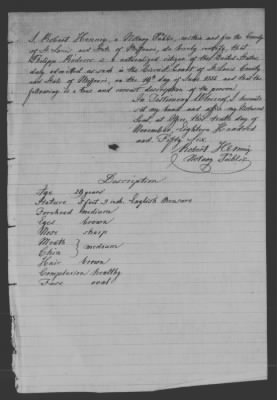 I, Robert Henning, a Notary Public, within and for the County
of St. Louis and State of Missouri, do hereby certify, that
Philipp is a naturalized citizen of the United States
duly admitted as such in the Circuit Court of St. Louis County
and State of Missouri, on the 19th day of June 1856 and that the
following is a true and correct description of the person:
In Testimony Whereof, I hereunto
set my hand and affix my Notarial
Seal, at office, this tenth day of
November, Eighteen Hundred
and Fifty Six.
Robert Henning
Notary Public
Description
Age 29 years
Stature 5 feet 3 inch. English Measure
Forehead medium
Eyes brown
Nose sharp
Mouth } medium
Chin
Hair brown
Complexion healthy
Face oval